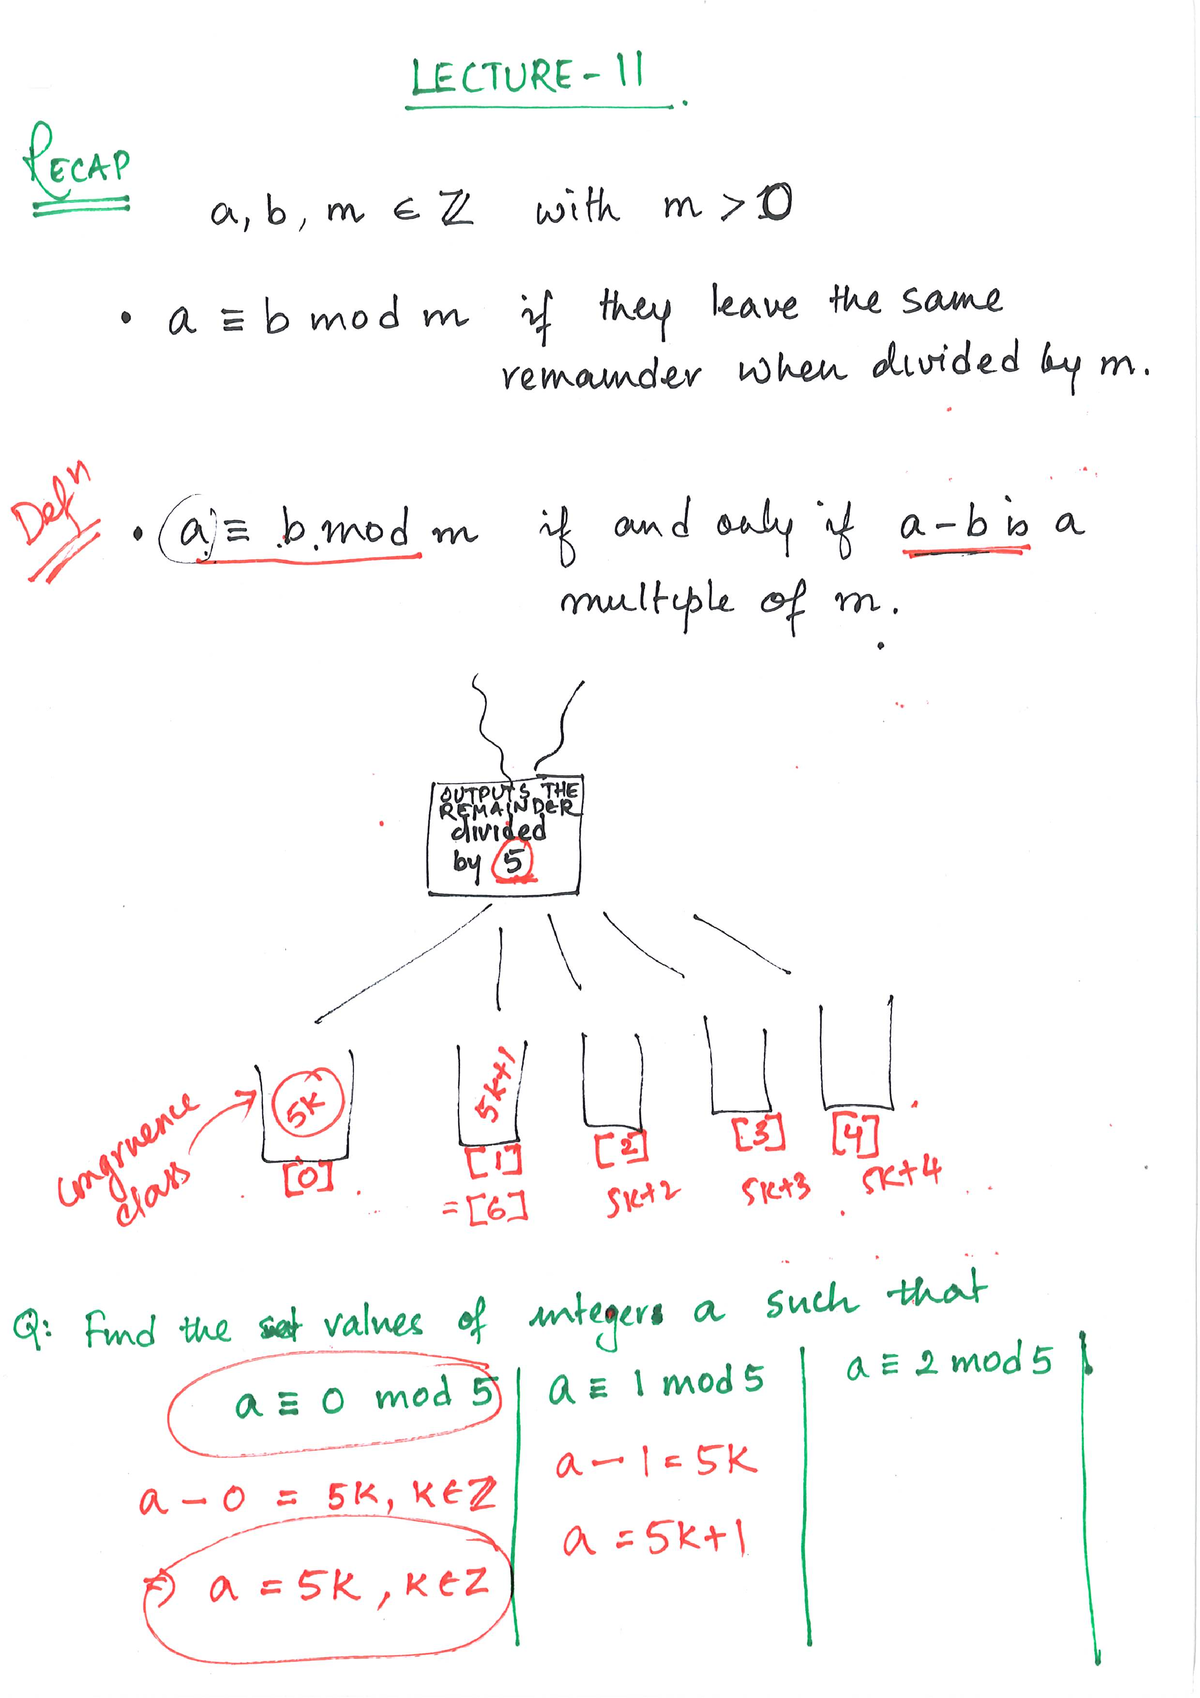 LECTURE - 11
RECAP
a, b, m ∈ ℤ with m > 0
• a ≡ b mod m if they leave the same
remainder when divided by m.
Defn
• a ≡ b mod m if and only if a - b is a
multiple of m.
OUTPUTS THE
REMAINDER
divided
by 5
congruence
class
5K
5K+1
[0]
[1]
[2]
[3]
[4]
= [6]
5K+2
5K+3
5K+4
Q: Find the set values of integers a such that
a ≡ 0 mod 5
a - 0 = 5K, K∈ℤ
⇒ a = 5K, K∈ℤ
a ≡ 1 mod 5
a - 1 = 5K
a = 5K+1
a ≡ 2 mod 5